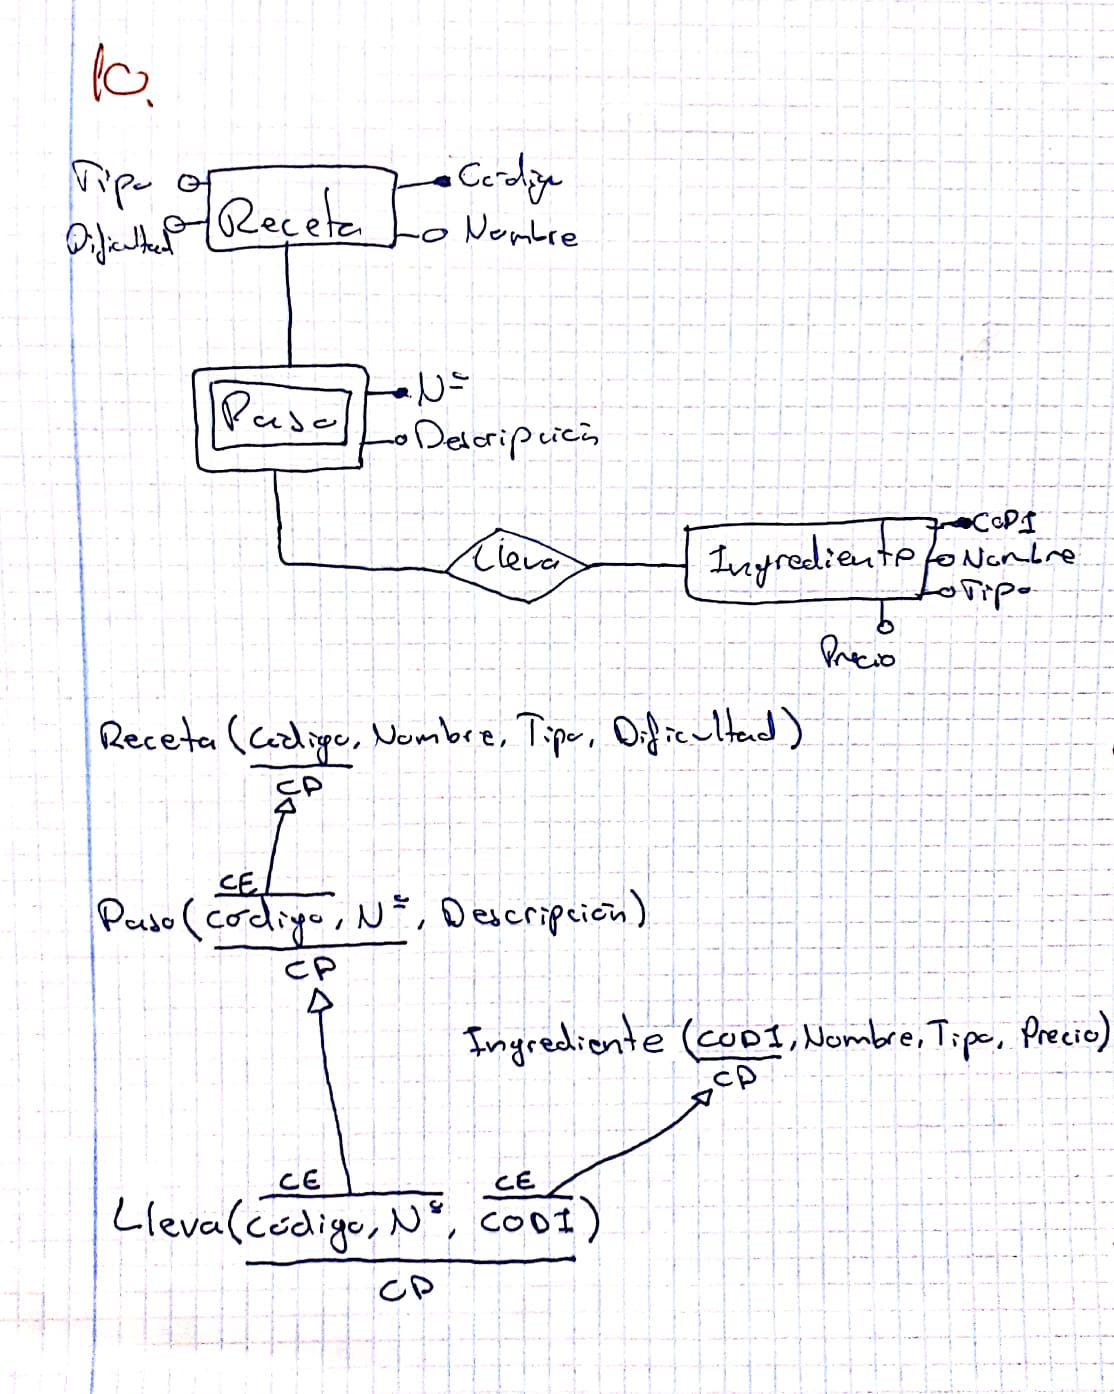 10.
Tipo
Código
Dificultad
Receta
Nombre
Nº
Paso
Descripción
CODI
Lleva
Ingrediente
Nombre
Tipo
Precio
Receta (Código, Nombre, Tipo, Dificultad)
CP
CE
Paso (código, Nº, Descripción)
CP
Ingrediente (CODI, Nombre, Tipo, Precio)
CP
CE CE
Lleva (código, Nº, CODI)
CP